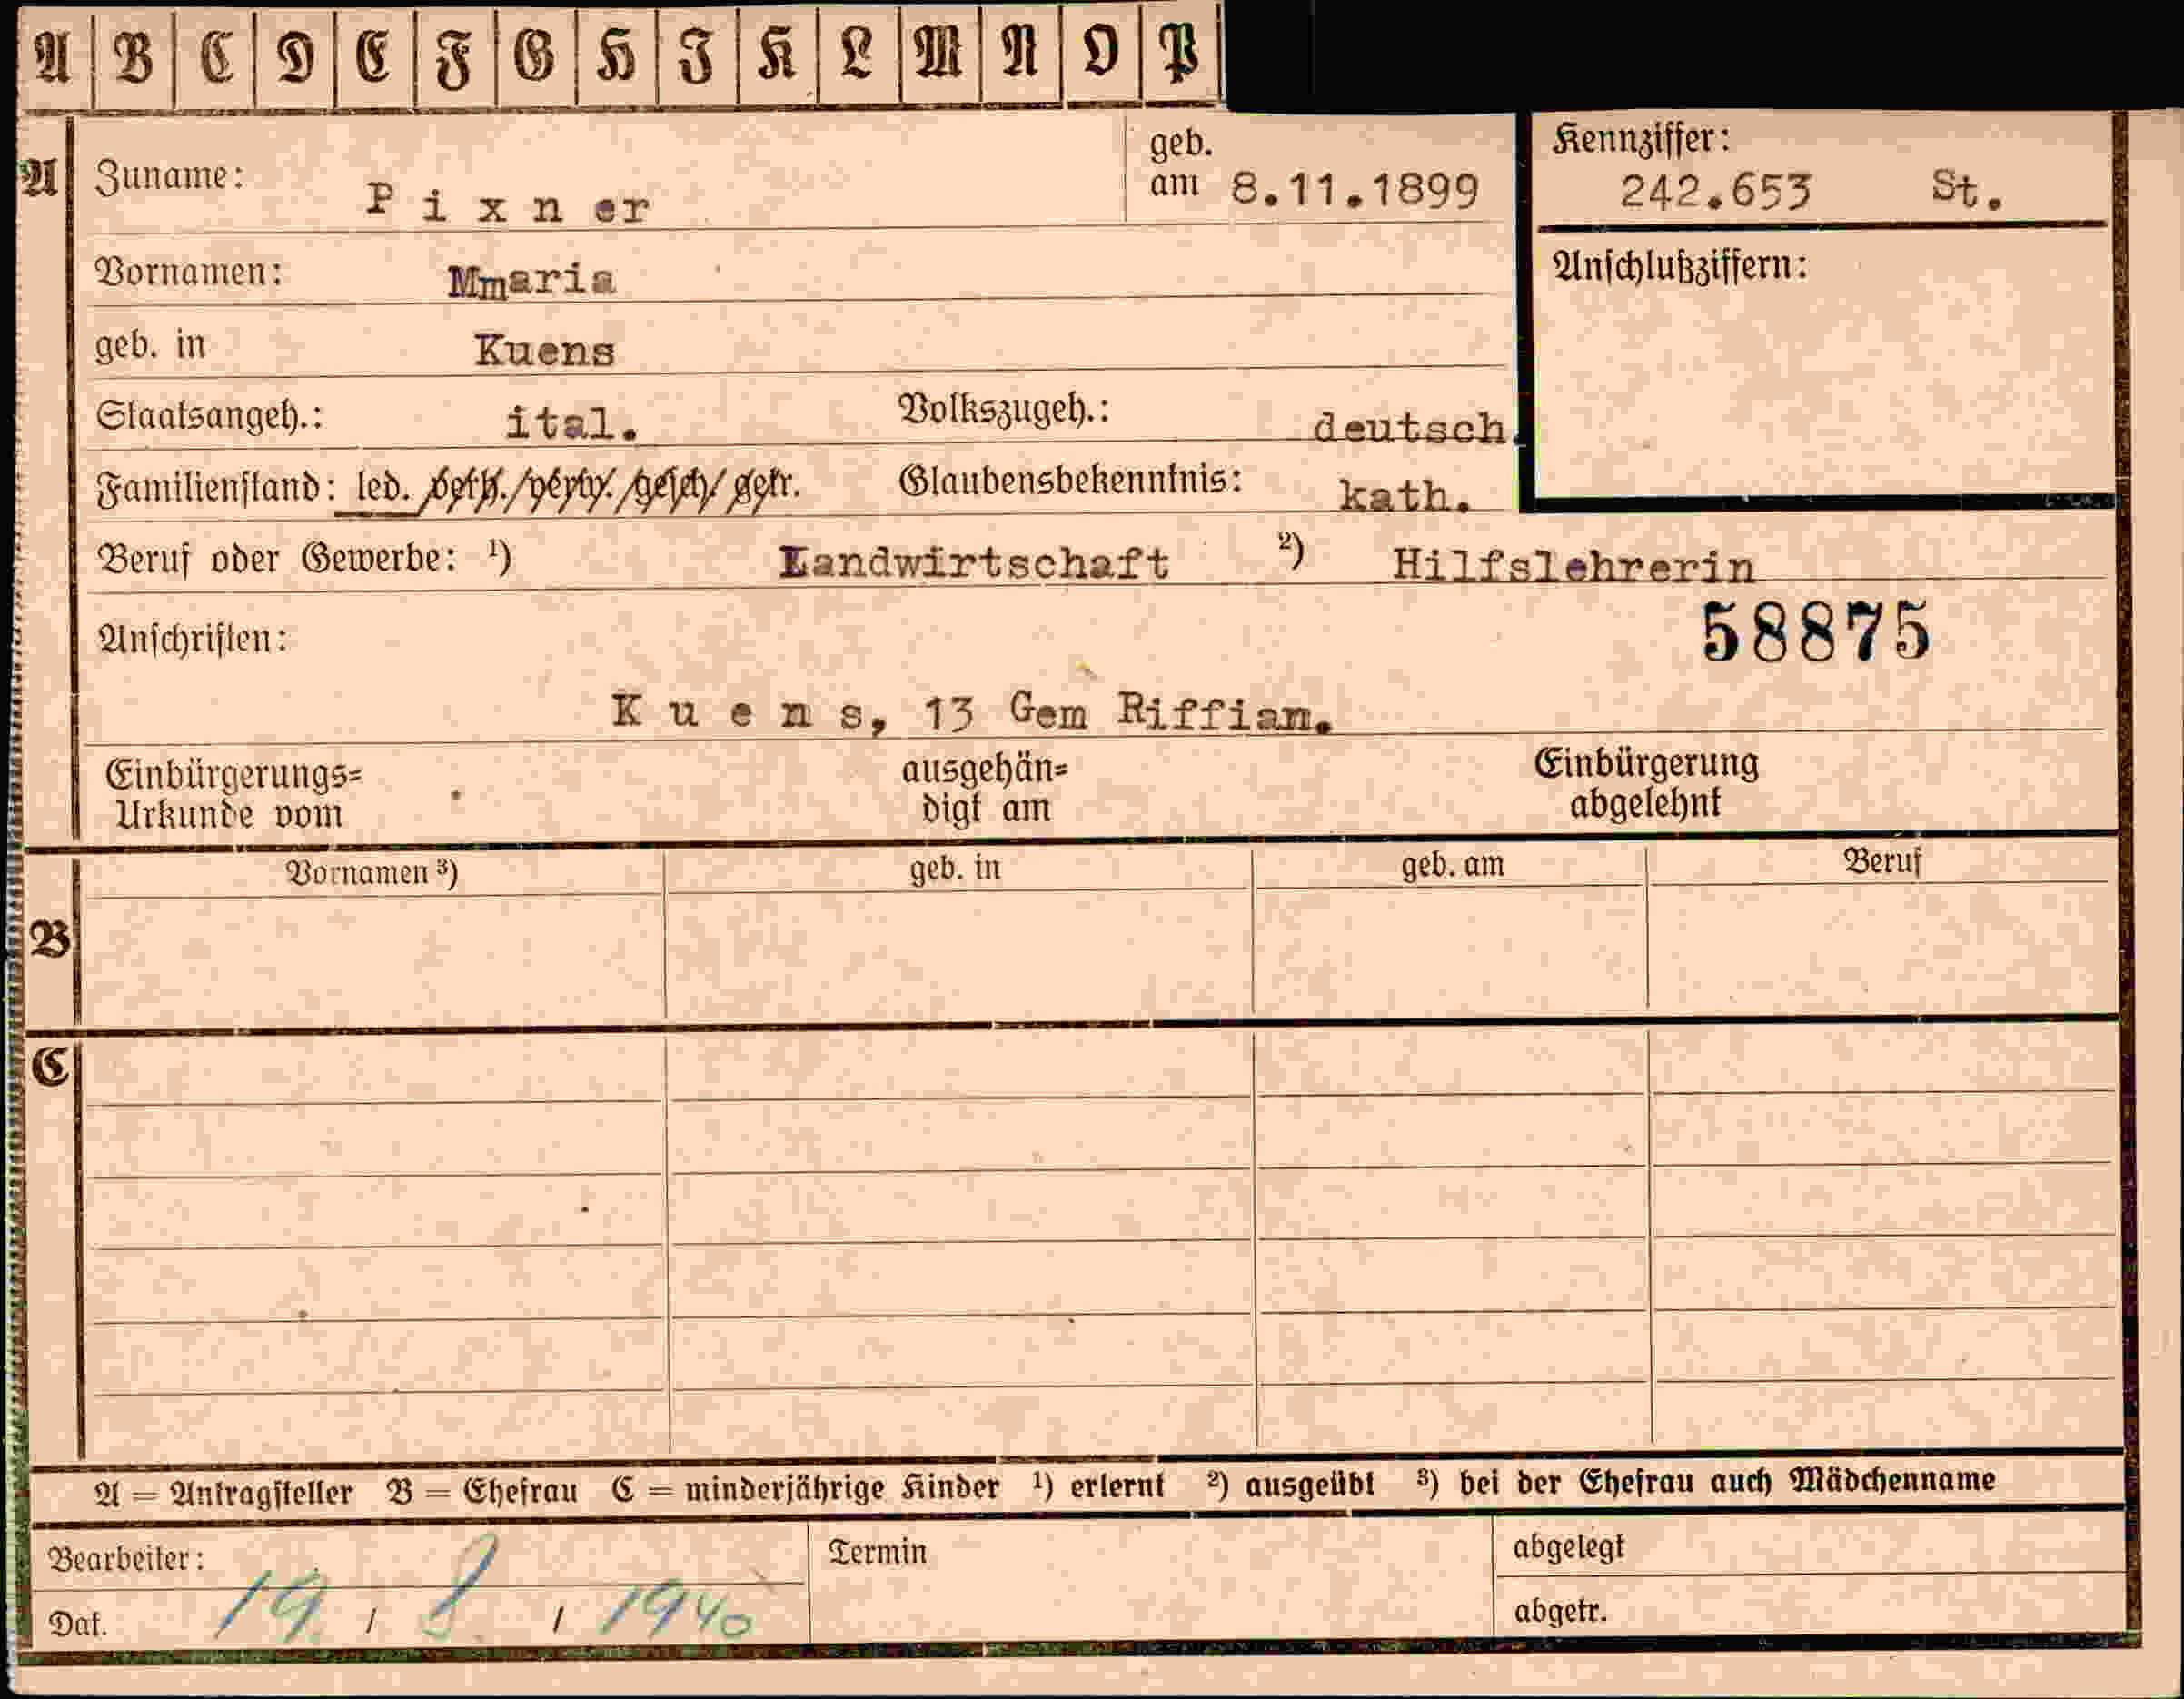 A B C D E F G H I K L M N O P
A Zuname: Pixner geb. am 8.11.1899
Kennziffer: 242.653 St.
Vornamen: Mmaria
Anschlußziffern:
geb. in Kuens
Staatsangeh.: ital. Volkszugeh.: deutsch.
Familienstand: led. / verh. / verw. / gesch / getr. Glaubensbekenntnis: kath.
Beruf oder Gewerbe: ¹) Landwirtschaft ²) Hilfslehrerin
58875
Anschriften:
Kuens, 13 Gem Riffian.
Einbürgerungs= ausgehän= Einbürgerung
Urkunde vom digt am abgelehnt
Vornamen ³) geb. in geb. am Beruf
B
C
A = Antragsteller B = Ehefrau C = minderjährige Kinder ¹) erlernt ²) ausgeübt ³) bei der Ehefrau auch Mädchenname
Bearbeiter: Termin abgelegt
Dat. 19. / 8. / 1940 abgetr.